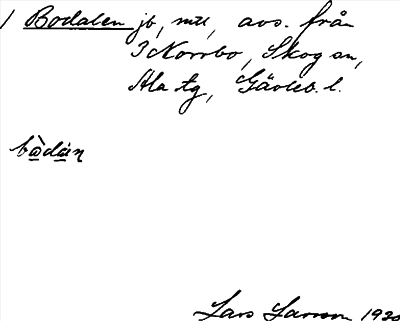 1 Bodalen jb, mtl, avs. från
3 Norrbo, Skog sn,
Ala tg, Gävleb. l.
bòdàn
Lars Larsson 1920